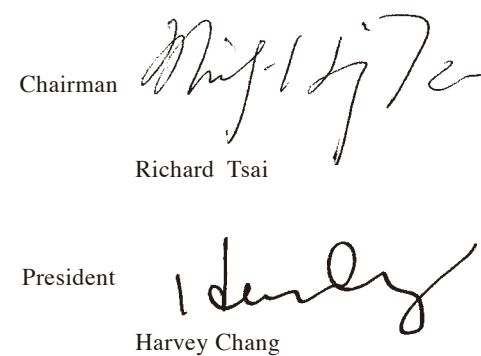 Chairman
Richard Tsai
President
Harvey Chang